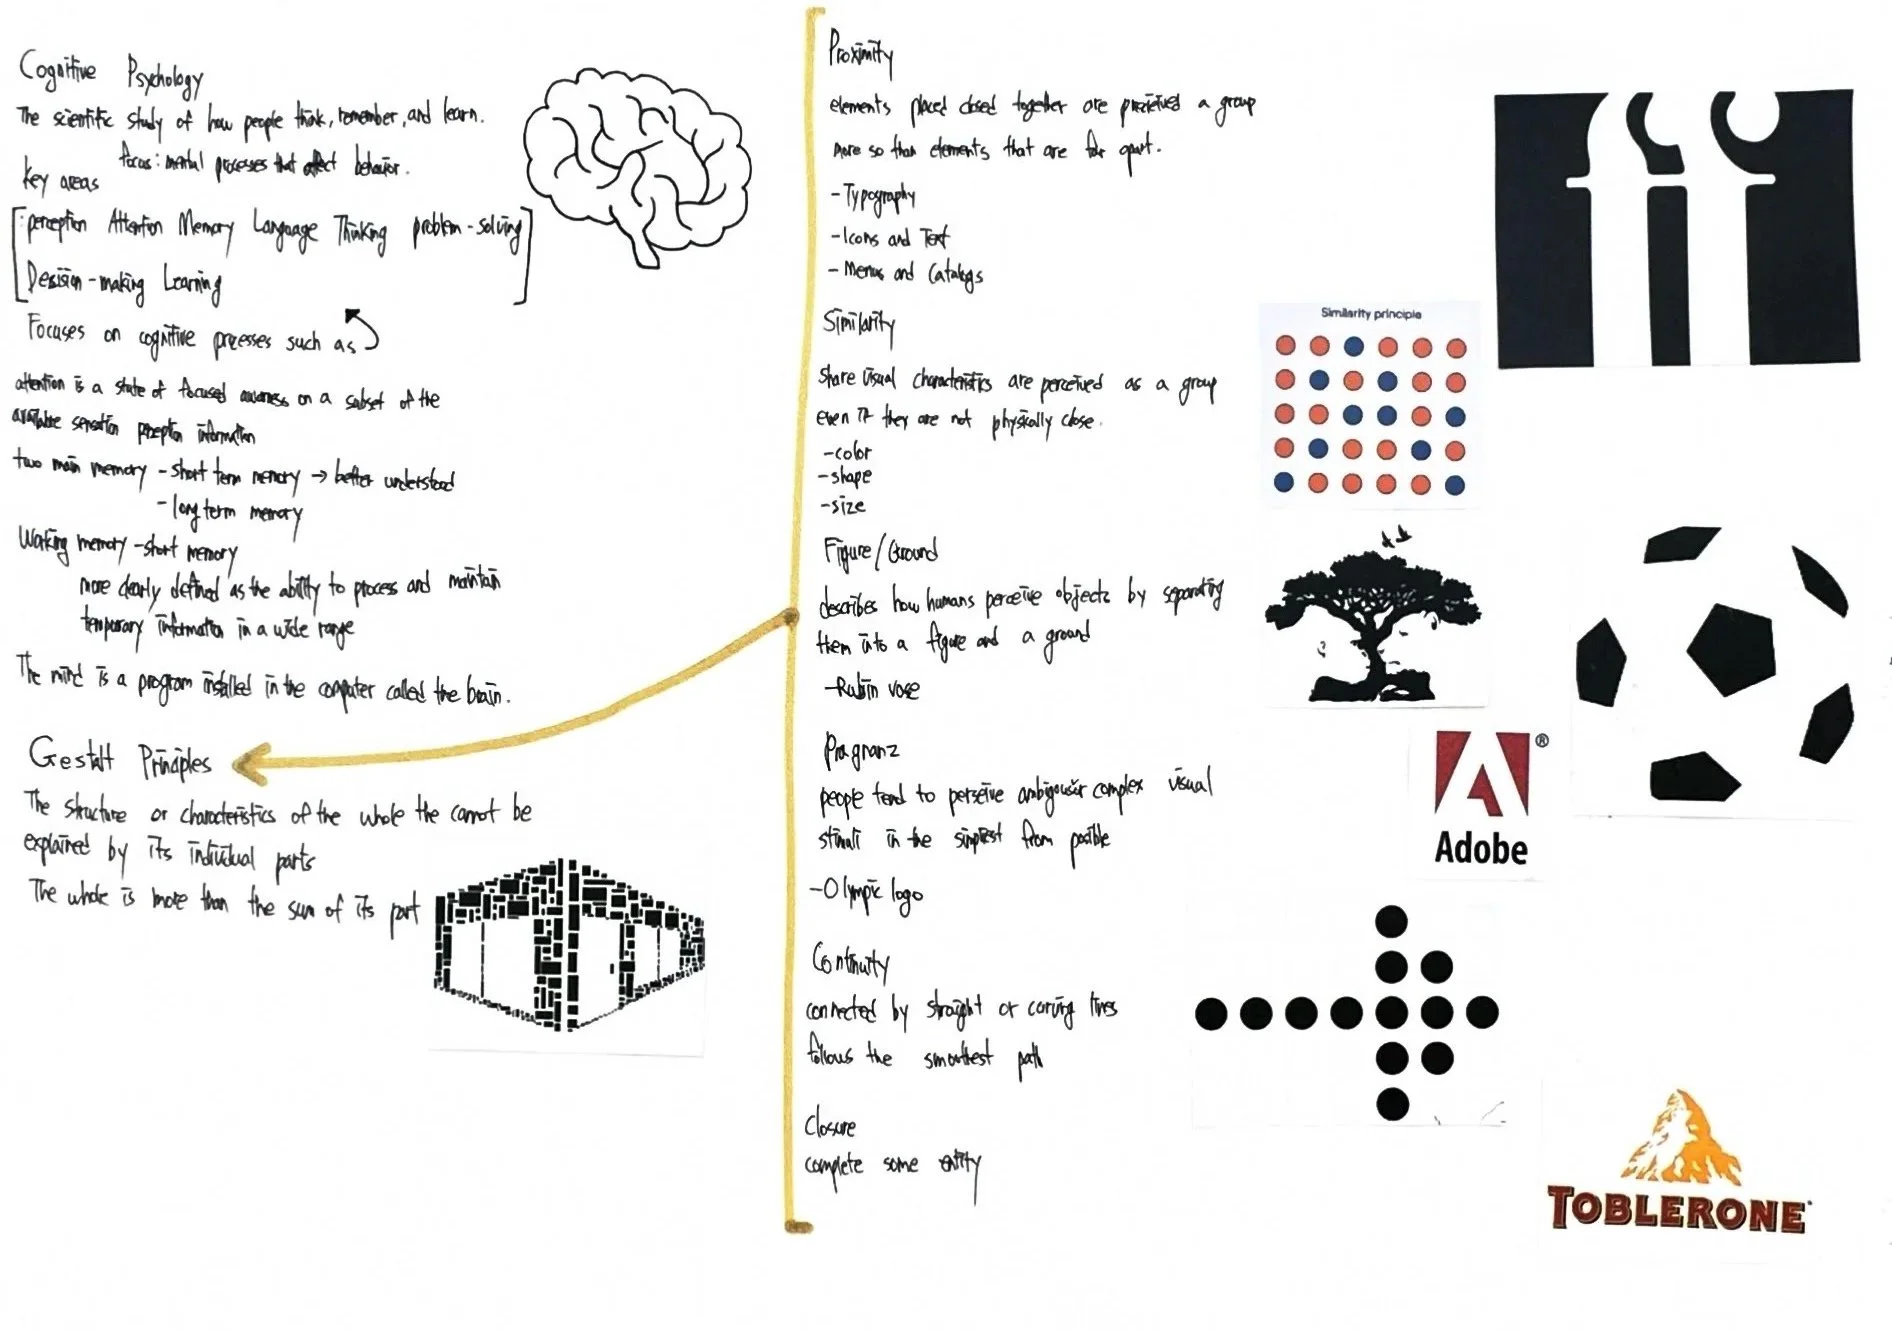 Cognitive Psychology
The scientific study of how people think, remember, and learn.
focus: mental processes that affect behavior.
key areas
perception Attention Memory Language Thinking problem-solving
Decision-making Learning
Focuses on cognitive processes such as
attention is a state of focused awareness on a subset of the
available sensation perception information
two main memory - short term memory → better understood
- long term memory
Working memory - short memory
more clearly defined as the ability to process and maintain
temporary information in a wide range
The mind is a program installed in the computer called the brain.
Gestalt Principles
The structure or characteristics of the whole the cannot be
explained by its individual parts
The whole is more than the sum of its part
Proximity
elements placed closed together are a group
more so than elements that are far apart.
- Typography
- Icons and Text
- Menus and Catalogs
Similarity
share visual characteristics are perceived as a group
even if they are not physically close.
- color
- shape
- size
Similarity principle
Figure/Ground
describes how humans perceive objects by separating
them into a figure and a ground
- Rubin vase
Pragranz
people tend to perseive complex visual
stimuli in the simplest from posible
- Olympic logo
Adobe
®
Continuity
connected by straight or curving lines
follows the smoothest path
Closure
complete some entity
TOBLERONE